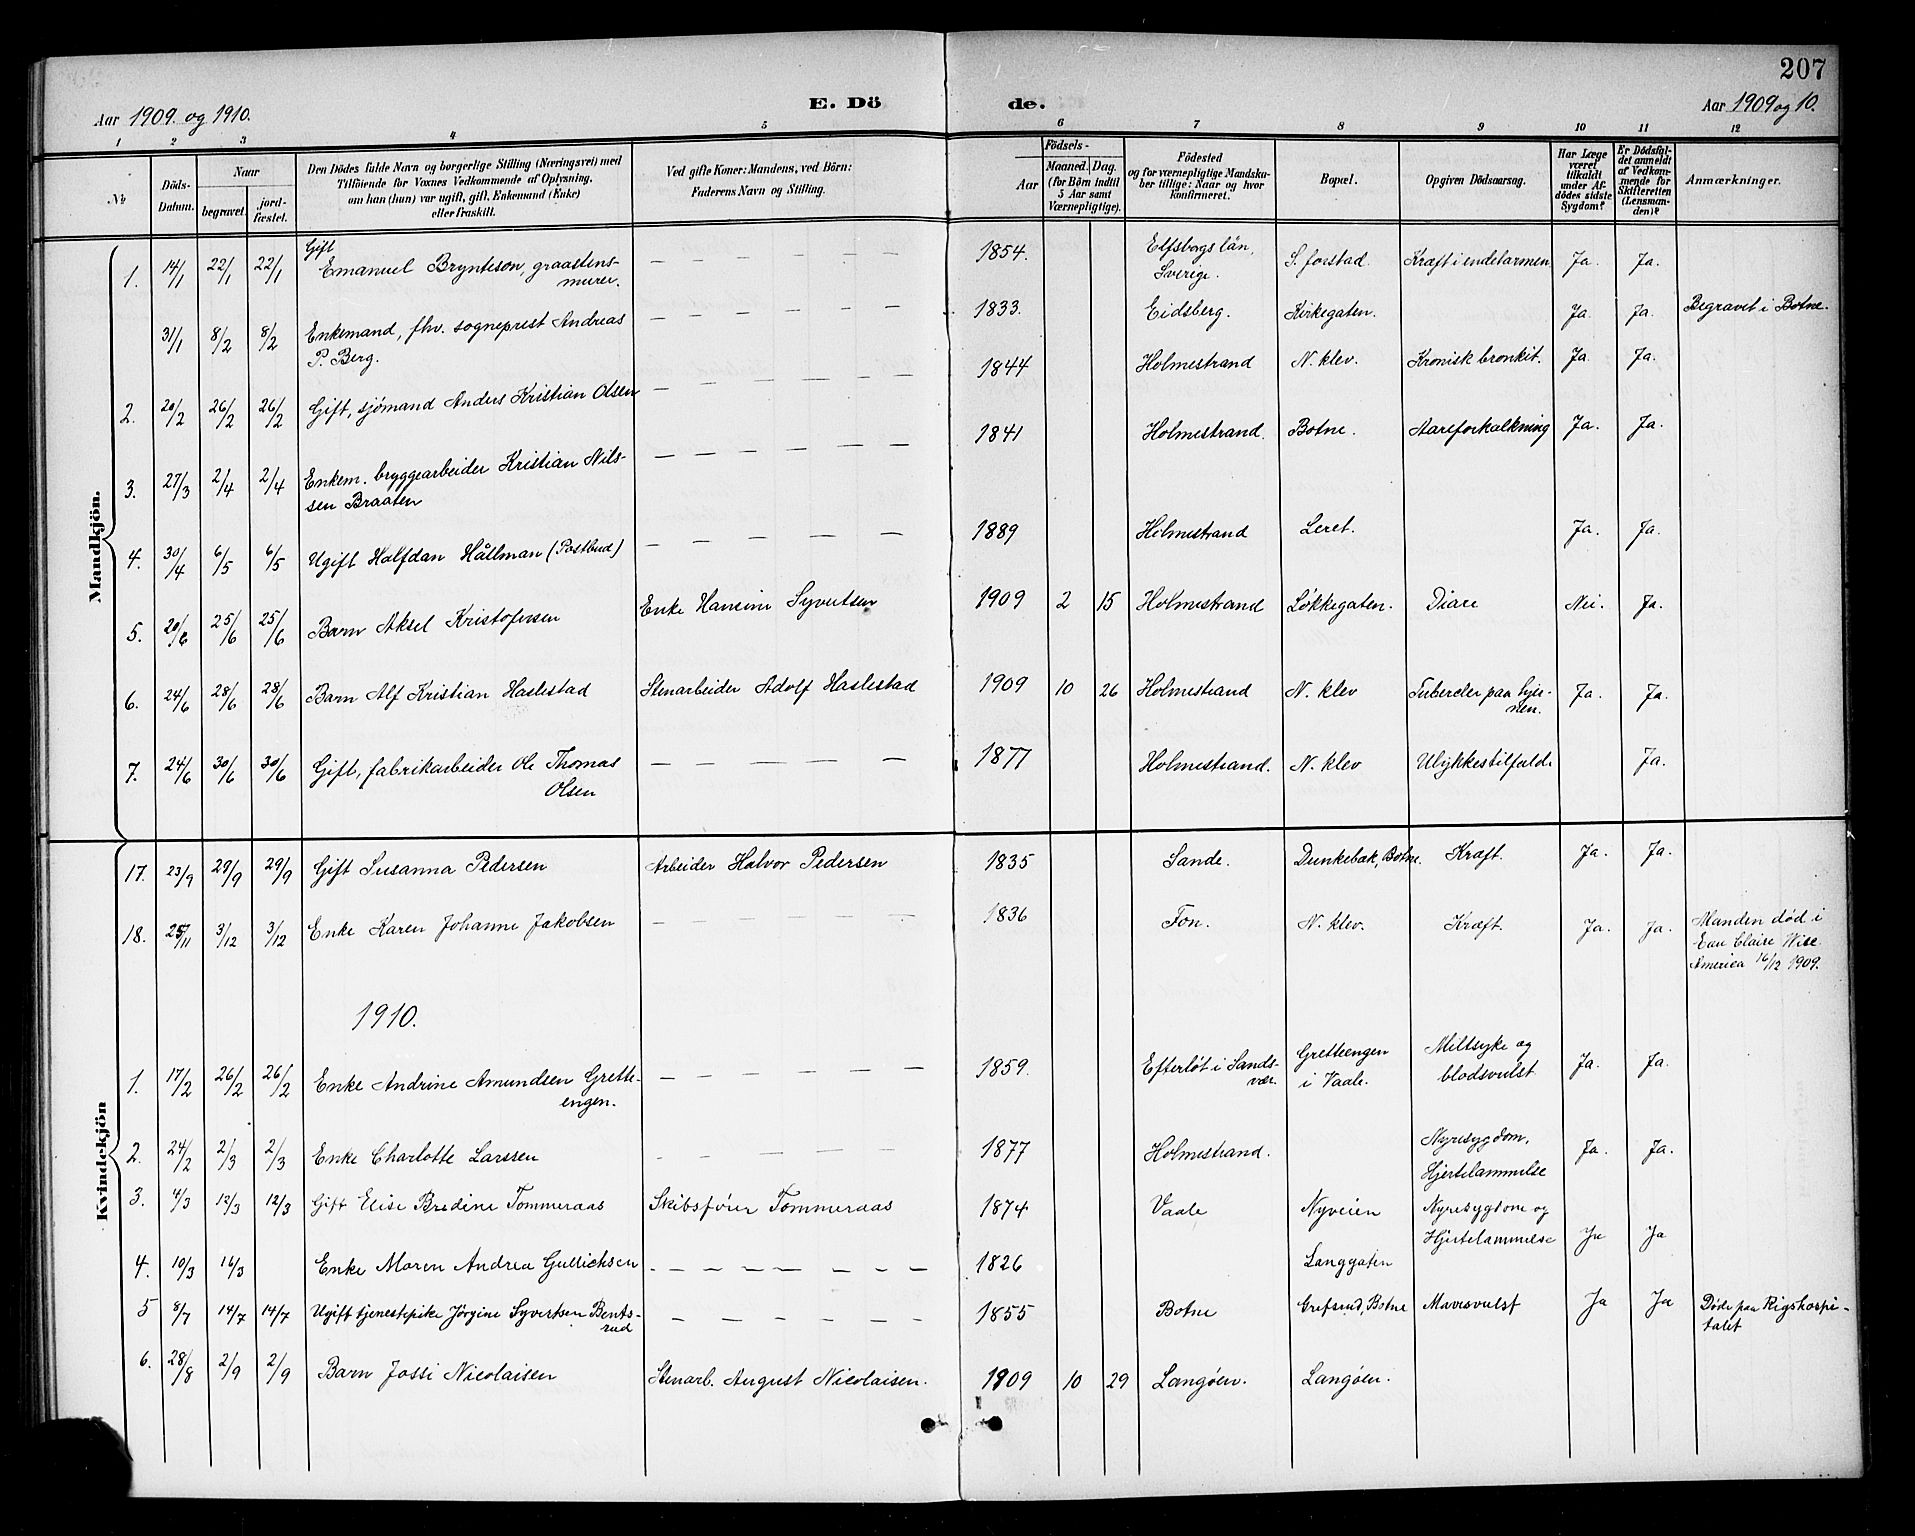 207
Aar 1909. og 1910. E. Dö de. Aar 1909 og 10.
1 2 3 4 5 6 7 8 9 10 11 12
№ Döds-Datum. Naar begravet. jordfæstet. Den Dödes fulde Navn og borgerlige Stilling (Næringsvei) med Tilföiende for Voxnes Vedkommende af Oplysning, om han (hun) var ugift, gift, Enkemand (Enke) eller fraskilt. Ved gifte Koner: Mandens, ved Börn: Faderens Navn og Stilling. Aar Födsels- Maaned. Dag. (for Börn indtil 5 Aar samt Værnepligtige). Födested og for værnepligtige Mandskaber tillige: Naar og hvor konfirmeret. Bopæl. Opgiven Dödsaarsag. Har Læge været tilkaldt under Afdödes sidste Sygdom? Er Dödsfaldet anmeldt af Vedkommende for Skifteretten (Lensmanden)? Anmærkninger.
Mandkjön.
1. 14/1 22/1 22/1 Gift Emanuel Brynteson, graastens- — — — — — — 1854. Elfsborgs län, S. forstad. Kræft i endetarmen Ja. Ja.
murer. Sverige.
31/1 8/2 8/2 Enkemand, fhv. sogneprest Andreas — — — — — — 1833. Eidsberg. Kirkegaten. Ja. Ja. Begravet i Botne.
P. Berg.
2. 20/2 26/2 26/2 Gift, sjömand Anders Kristian Olsen — — — — — — 1844 Holmestrand N. klev. Kronisk bronkit. Ja. Ja.
3. 27/3 2/4 2/4 Enkem. bryggearbeider Kristian Nils- — — — — — — 1841 Holmestrand. Botne. Aareforkalkning Ja. Ja.
sen Braaten
4. 30/4 6/5 6/5 Ugift Halfdan Hållman (Postbud) — — — — — 1889 Holmestrand Leret. Ja. Ja.
5. 20/6 25/6 25/6 Barn Aksel Kristofersen Enke Hansine Syvertsen 1909 2 15 Holmestrand Løkkegaten. Diare Nei. Ja.
6. 24/6 28/6 28/6 Barn Alf Kristian Haslestad Stenarbeider Adolf Haslestad 1909 10 26 Holmestrand N. klev Tubercler paa hjer- Ja. Ja.
nen.
7. 24/6 30/6 30/6 Gift, fabrikarbeider Ole Thomas — — — — — 1877 Holmestrand. N. klev Ulykkestilfælde Ja.
Olsen
Kvindekjön
17. 23/9 29/9 29/9 Gift Susanna Pedersen Arbeider Halvor Pedersen 1835 Sande. Dunkebæk, Botne. Kræft. Ja. Ja.
18. 25/11 3/12 3/12 Enke Karen Johanne Jakobsen — — — — — — 1836 Fon. N. klev. Kræft. Ja. Ja. Manden död i
Eau Claire Wisc.
America 16/12 1909.
1910.
1. 17/2 26/2 26/2 Enke Andrine Amundsen Grette- — — — — — — 1859. Efterløt i Sands- Gretteengen Miltsyke og Ja. Ja.
engen. vær. i Vaale. blodsvulst
2. 24/2 2/3 2/3 Enke Charlotte Larssen — — — — — — 1877 Holmestrand. Nyresygdom, Ja. Ja.
Hjertelammelse
3. 4/3 12/3 12/3 Gift Elise Bredine Tommeraas Skibsfører Tommeraas 1874 Vaale Nyveien Nyresygdom og
Hjertelammelse Ja Ja
4. 10/3 16/3 Enke Maren Andrea Gullichsen — — — — — — 1826 Langgaten
5 8/7 14/7 14/7 Ugift tjenestepike Jørgine Syvertsen Bents- — — — — — — 1855 Botne Grefsrud, Botne Mavesvulst Ja Ja Døde paa Rigshospi-
rud talet
6. 28/8 2/9 2/9 Barn Jossi Nicolaisen Stenarb. August Nicolaisen. 1909 10 29 Langøen. Langøen.